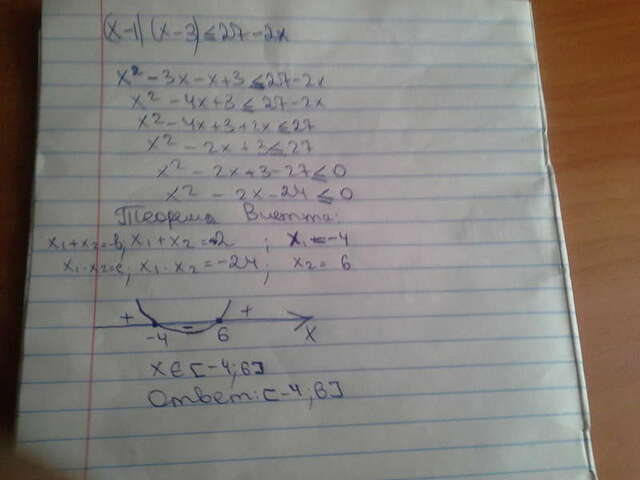 (x-1)(x-3)≤27-2x
x²-3x-x+3≤27-2x
x²-4x+3≤27-2x
x²-4x+3+2x≤27
x²-2x+3≤27
x²-2x+3-27≤0
x²-2x-24≤0
Теорема Виетта:
x₁+x₂=b, x₁+x₂=2; x₁=-4
x₁·x₂=c, x₁·x₂=-24, x₂=6
+ - +
-4 6 X
X∈[-4;6]
Ответ:[-4;6]